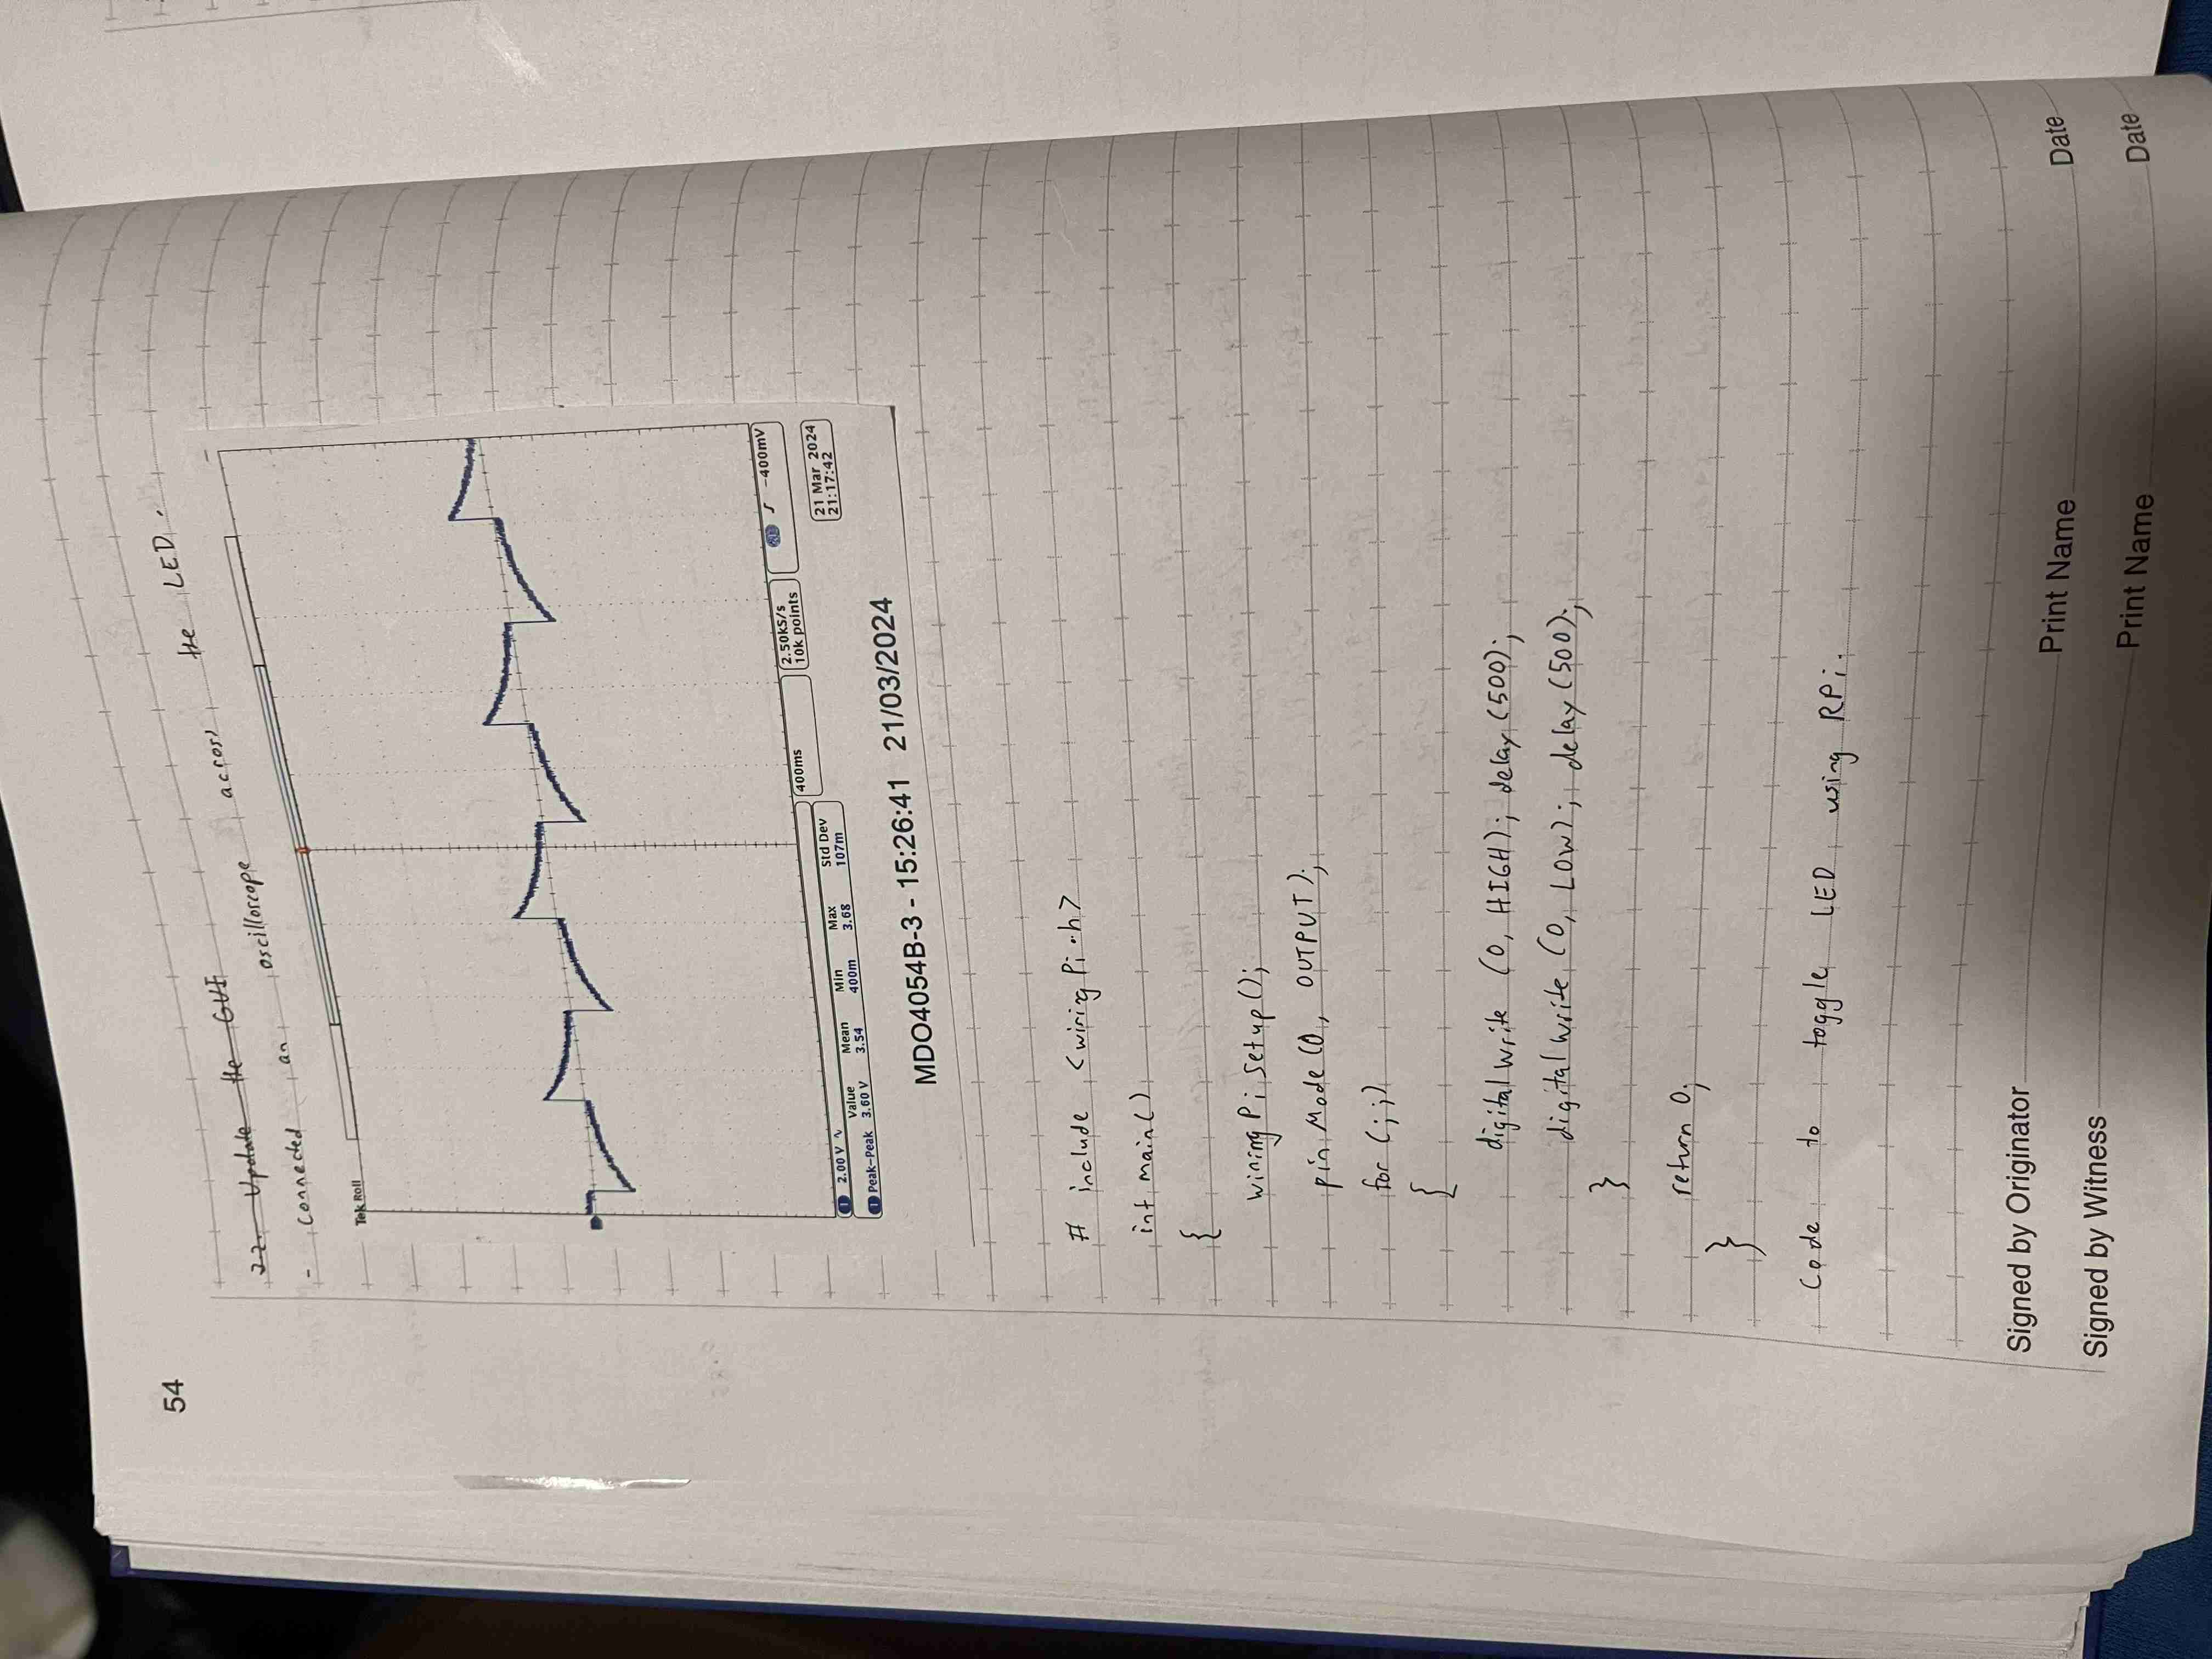 54
22. Update the GUI
- Connected an oscilloscope across the LED.
Tek Roll
1 2.00 V ∿
400ms
2.50kS/s
10k points
1 ∫ -400mV
Value Mean Min Max Std Dev
1 Peak-Peak 3.60 V 3.54 400m 3.68 107m
21 Mar 2024
21:17:42
MDO4054B-3 - 15:26:41 21/03/2024
# include <wiringPi.h>
int main()
{
wiringPiSetup();
pinMode(0, OUTPUT);
for (;;)
{
digitalWrite (0, HIGH); delay (500);
digitalWrite (0, LOW); delay (500);
}
return 0;
}
Code to toggle LED using RPi.
Signed by Originator
Print Name
Date
Signed by Witness
Print Name
Date